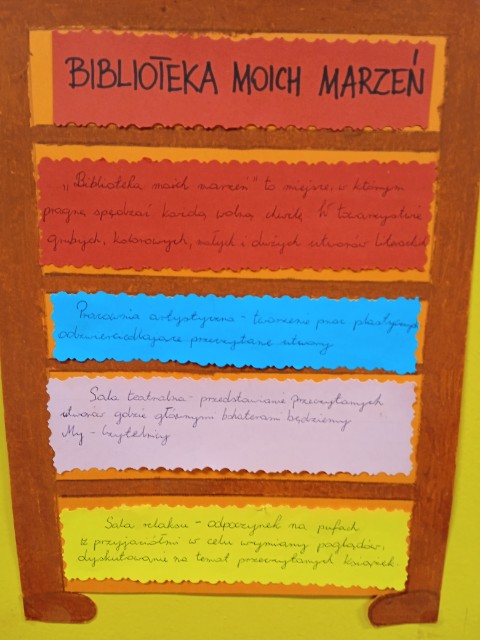 BIBLIOTEKA MOICH MARZEŃ
„Biblioteka moich marzeń" to miejsce, w którym
pragnę spędzać każdą wolną chwilę W towarzystwie
grubych, kolorowych, małych i dużych utworów
Pracownia artystyczna - tworzenie prac plastycznych
odzwierciedlające przeczytane utwory
Sala teatralna - przedstawianie przeczytanych
utworów gdzie głównymi bohaterami będziemy
My - czytelnicy
Sala relaksu - odpoczynek na pufach
z przyjaciółmi w celu wymiany poglądów,
dyskutowanie na temat przeczytanych książek.